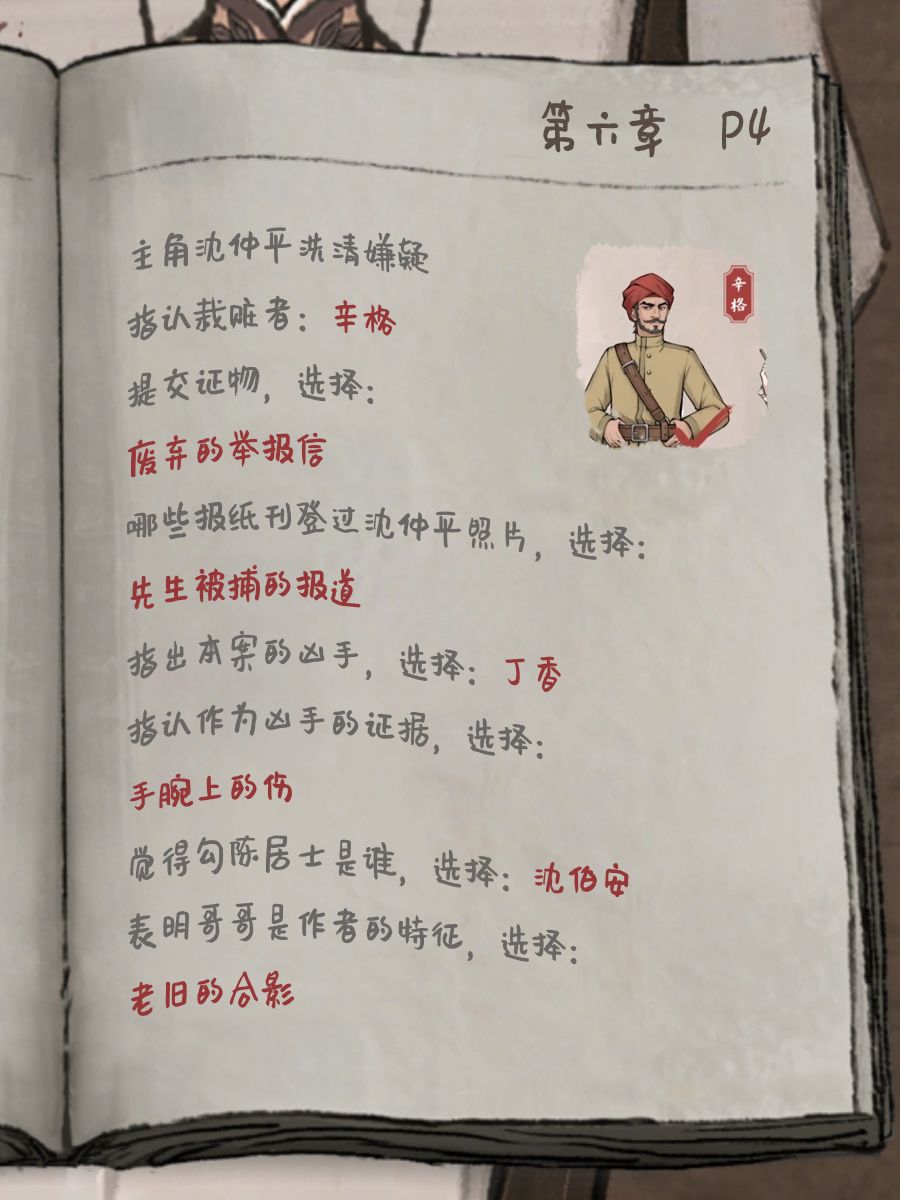 第六章 P4
主角沈仲平洗清嫌疑
指认栽赃者：辛格
辛格
提交证物，选择：
废弃的举报信
哪些报纸刊登过沈仲平照片，选择：
先生被捕的报道
指出本案的凶手，选择：丁香
指认作为凶手的证据，选择：
手腕上的伤
觉得勾陈居士是谁，选择：沈伯安
表明哥哥是作者的特征，选择：
老旧的合影